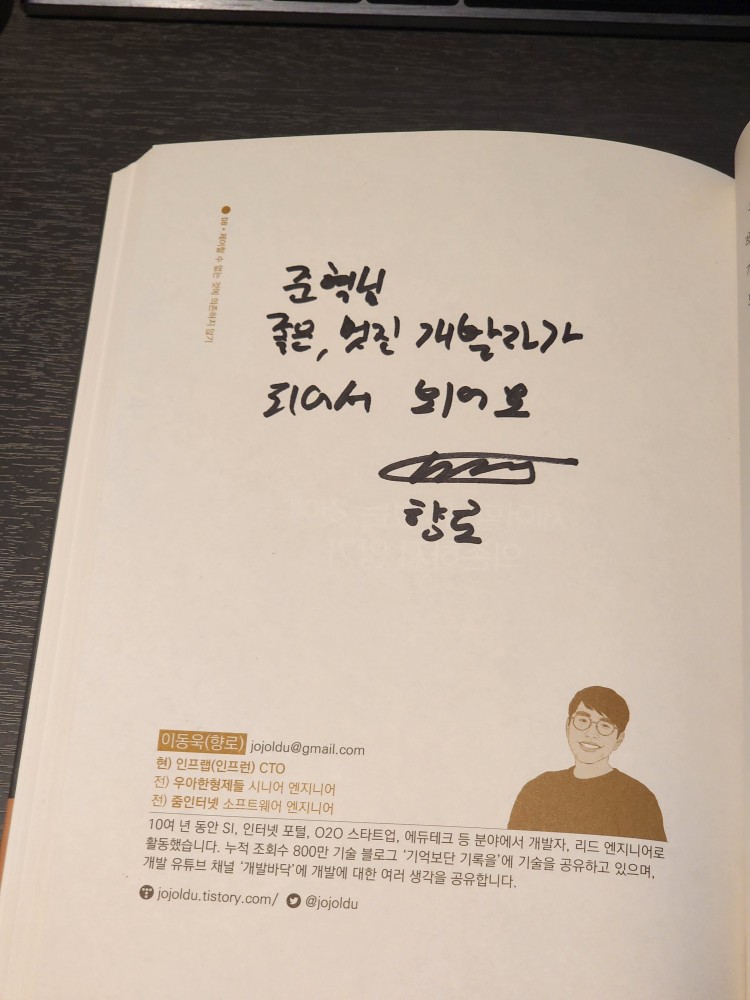 08 • 제어할 수 없는 것에 의존하지 않기
준혁님
좋은, 멋진 개발자가
되어서 뵈어요
향로
이동욱(향로) jojoldu@gmail.com
현) 인프랩(인프런) CTO
전) 우아한형제들 시니어 엔지니어
전) 줌인터넷 소프트웨어 엔지니어
10여 년 동안 SI, 인터넷 포털, O2O 스타트업, 에듀테크 등 분야에서 개발자, 리드 엔지니어로
활동했습니다. 누적 조회수 800만 기술 블로그 '기억보단 기록을'에 기술을 공유하고 있으며,
개발 유튜브 채널 '개발바닥'에 개발에 대한 여러 생각을 공유합니다.
jojoldu.tistory.com/ @jojoldu